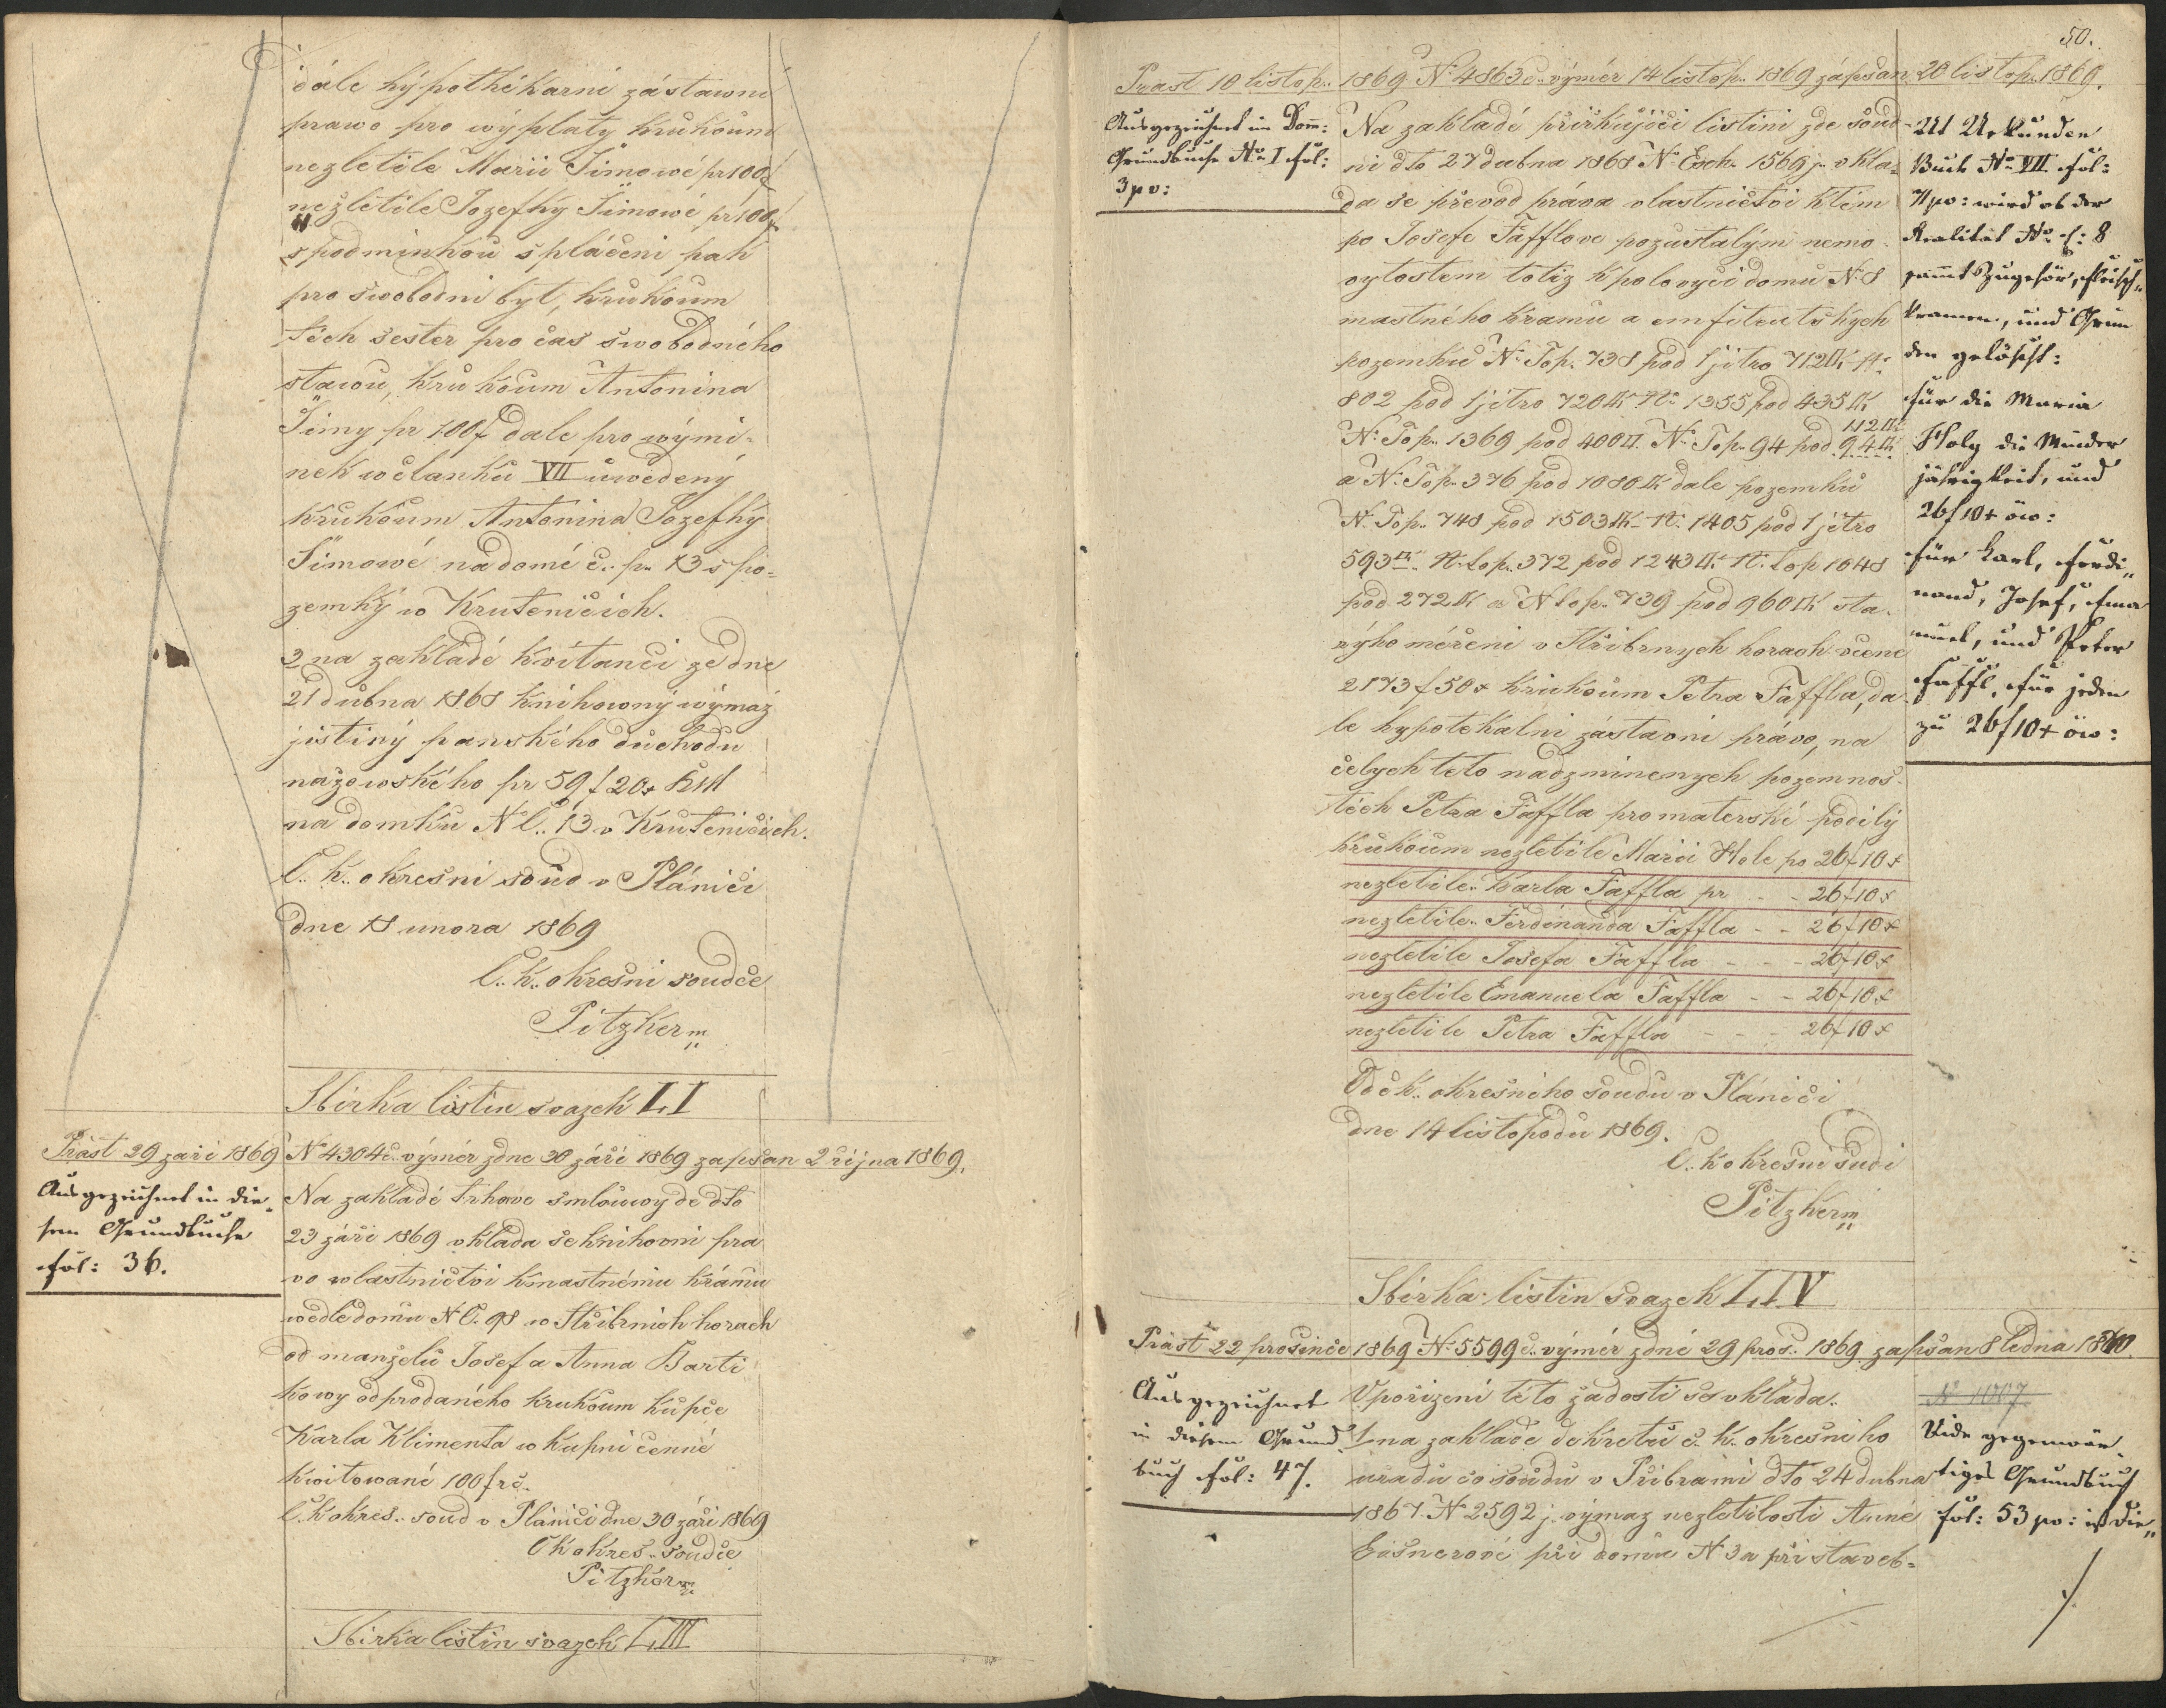 dále hypothékarni zástawni
prawo pro wýplaty krukoum
nezletile Marii Šimowé pr 100 f
nezletile Jozefky Šimowé pr 100 f
s podminkou spláceni pak
pro swobodni byt, krukoum
těch sester pro čas swobodného
stawu, krukoum Antonina
Šimy pr 100 f dale pro wými-
nek w članku VII uwedený
krukoum Antonina Jozefky
Šimowé na domě č. p. 13 s po-
zemky w Krutenicich.
2 na zakladě kvitanci ze dne
21 dubna 1868 knihowný wýmaz
jistiny panského duchodu
nažowského pr 59 f 20 x KM
na domku N C. 13 v Krutenicich.
C. k. okresni soud v Plánici
dne 18 unora 1869
C. k. okresni soudce
Pitzker m
Sbirka listin svazek LI
Präst 29 zari 1869 N 4304 c. výměr zdne 30 září 1869 zapsan 2 řijna 1869.
Ausgezeichnet in die-
sem Grundbuche
fol: 36.
Na zakladě trhowe smlouwy de dto
23 září 1869 vklada se knihovni pra
vo vlastnictvi k mastnému krámu
wedle domu N C. 98 w Střibrnich horach
od manželu Josef a Anna Barti
kowy odprodaného krukoum kupce
Karla Klimenta w kupni cenně
kwitowané 100 f rč.
C. k okres. soud v Plánici dne 30 září 1869
C k okres. soudce
Pitzker m
Sbirka listin svazek LIII
50.
Praest 10 listop. 1869 N 4863 c. výměr 14 listop. 1869 zápsan 20 listop. 1869.
Ausgezeichnet im Dom:
Grundbuche No I fol:
3 po:
Na zakladě přiřkujici listini zde soud-
ni dto 27 dubna 1868 N Exh. 1569 j. vkla-
da se převod práva vlastnictvi k těm
po Josefe Fafflove pozustalým nemo-
vytostem totiz k polovyci domu N 8
mastného kramu a emfiteutskych
pozemku N Top. 738 pod 1 jitro 712□K N
802 pod 1 jitro 720□K N 1355 pod 435□K
112□K
N Top. 1369 pod 400□. N Top. 94 pod 94□K
a N Top. 376 pod 1080□K dale pozemku
N. Top. 748 pod 1503□K N. 1405 pod 1 jitro
593□K N. top. 372 pod 1243□K N. top 1048
pod 272□K a N top. 739 pod 960□K sta-
rýho měřeni v Střibrnych horach v ceně
2173 f 50 x krukoum Petra Faffla, da
le hypotekalni zástavni právo, na
celych teto nadzminenych pozemnos-
těch Petra Faffla pro materské podily
krukoum nezletile Marii Hole po 26 f 10 x
nezletile. Karla Faffla pr - - 26 f 10 x
nezletile. Ferdinanda Faffla - - 26 f 10 x
nezletile Josefa Faffla - - - 26 f 10 x
nezletile Emanuela Faffla - - 26 f 10 x
nezletile Petra Faffla - - - 26 f 10 x
Od c k. okresniho soudu v Plánici
dne 14 listopadu 1869.
C. k okresni sudi
Pitzker m
Ut Urkunden
Buch No VII fol:
71 po: wird ob der
Realität No C: 8
samt Zugehör, Fleisch-
kramen, und Grün
den gelöscht:
für die Maria
Holy die Minder
jährigkeit, und
26 f 10 x öw:
für Karl, Ferdi-
nand, Josef, Ema
nuel, und Peter
Faffl, für jeden
zu 26 f 10 x öw:
Sbirka listin svazek LIV
Präst 22 prosince 1869 N 5599 c. výměr zdně 29 pros. 1869 zapsan 8 ledna 1870.
Ausgezeichnet
in diesem Grund
buch fol: 47.
Vpořizeni této žadosti se vkláda.
1 na zaklade dekretu c. k. okresniho
uřadu co soudu v Přibrami dto 24 dubna
1867 N 2592 j. výmaz nezletilosti Anně
při domu N 3 a při staveb-
Vide gegenwär-
tiges Grundbuch
fol: 53 po: ist die-